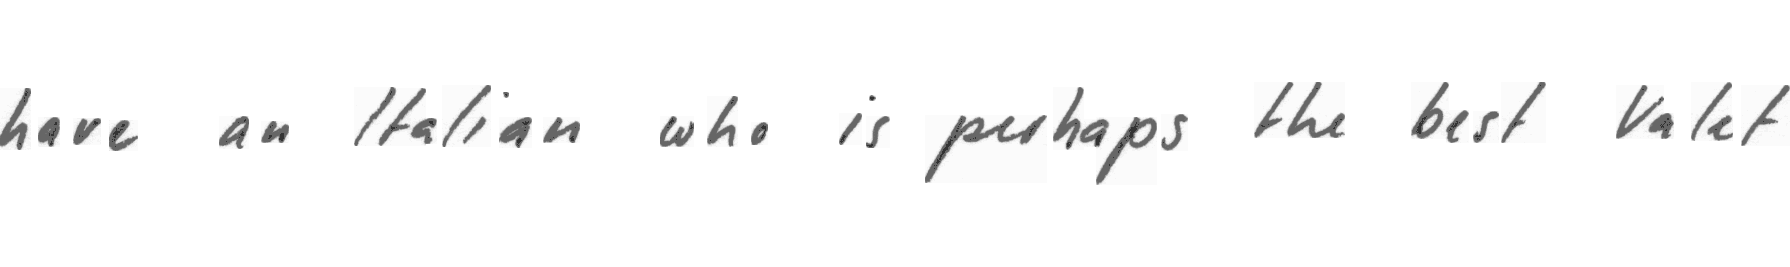 have an Italian who is perhaps the best Valet